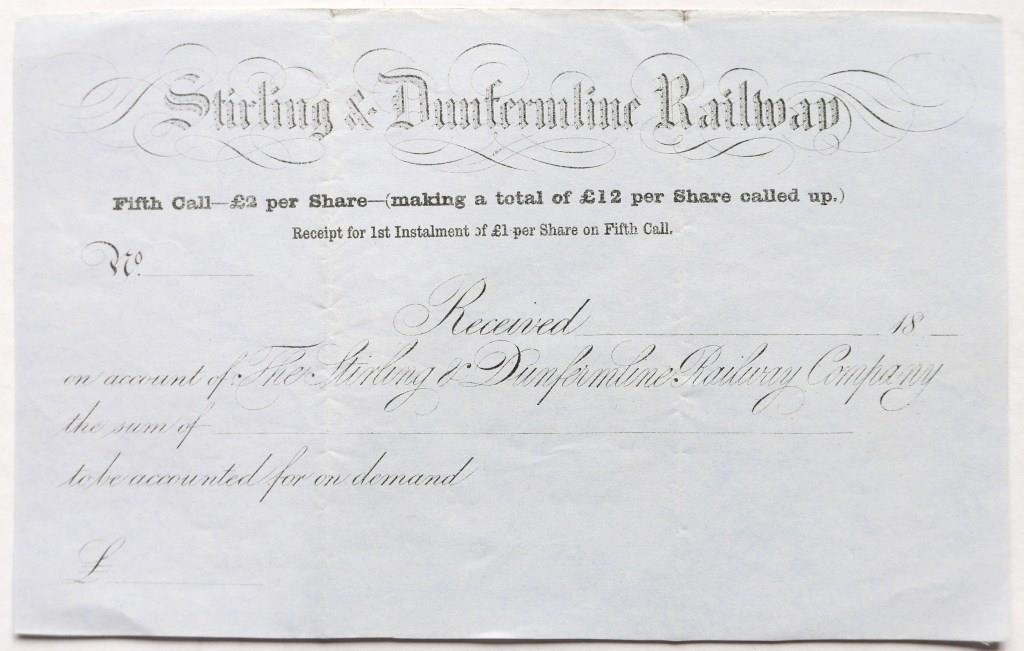 Stirling & Dunfermline Railway
Fifth Call—£2 per Share—(making a total of £12 per Share called up.)
Receipt for 1st Instalment of £1 per Share on Fifth Call.
No.
Received 18
on account of The Stirling & Dunfermline Railway Company
the sum of
to be accounted for on demand
£